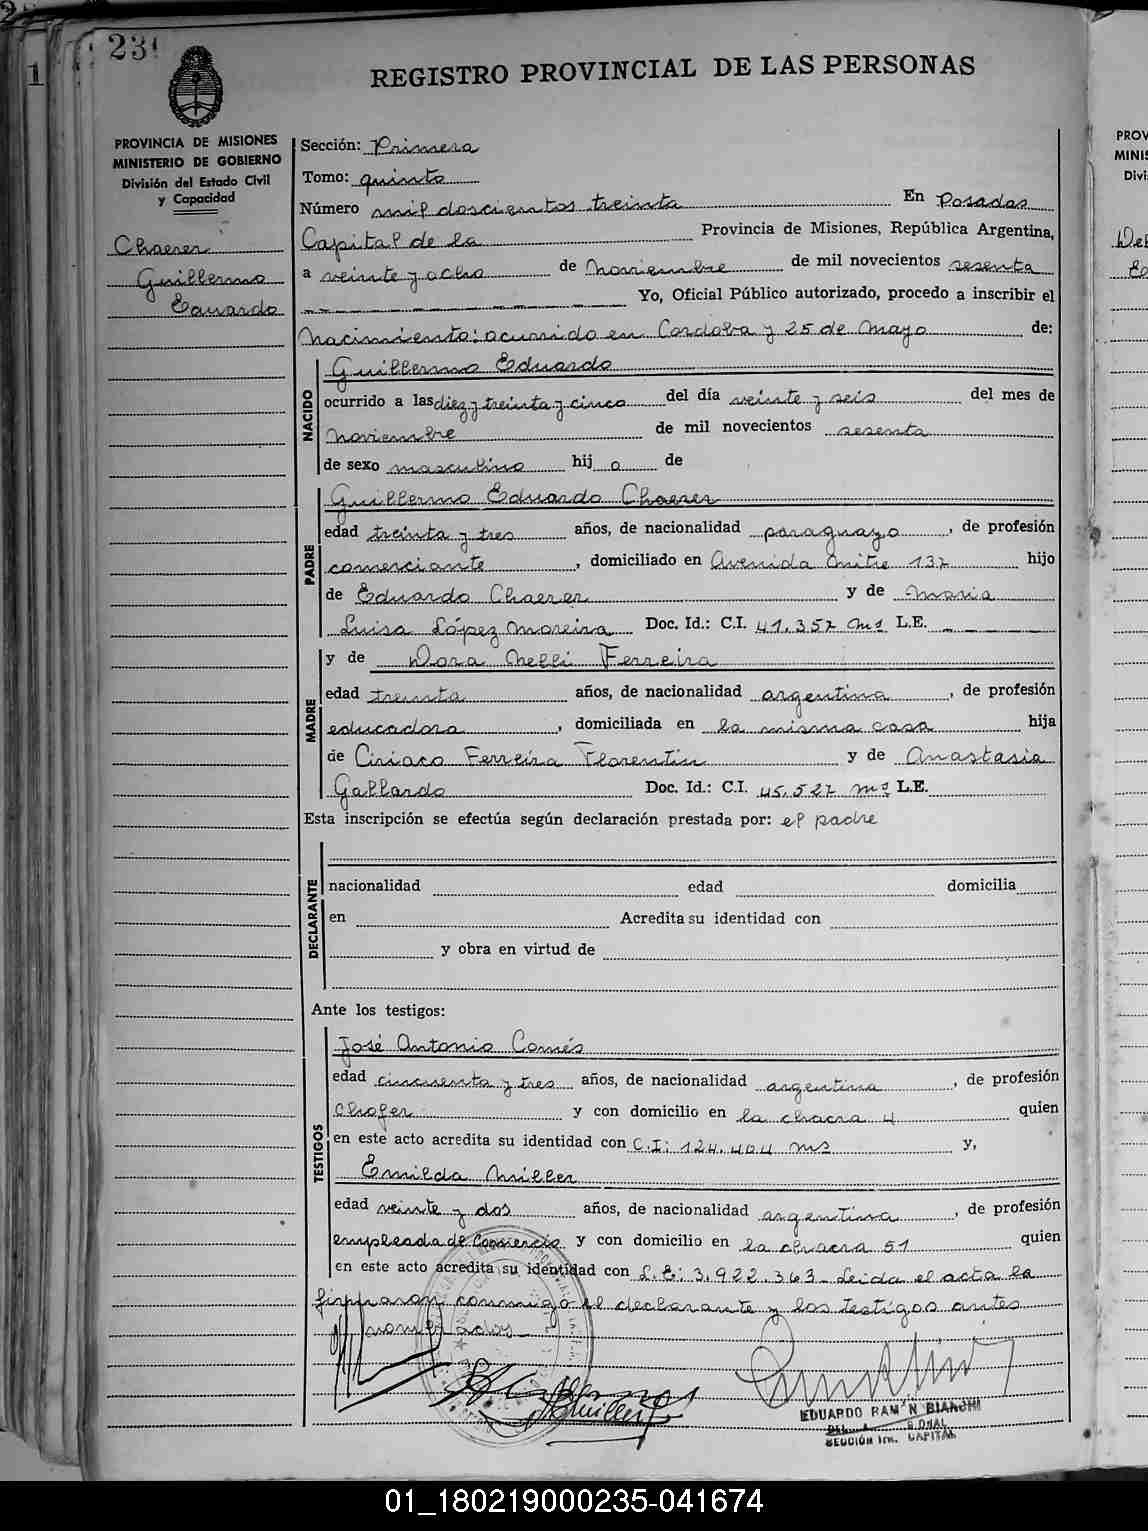 231
REGISTRO PROVINCIAL DE LAS PERSONAS
PROVINCIA DE MISIONES
MINISTERIO DE GOBIERNO
División del Estado Civil
y Capacidad
Chaerer
Guillermo
Eduardo
Sección: Primera
Tomo: quinto
Número mil doscientos treinta En Posadas
Capital de la Provincia de Misiones, República Argentina,
a veinte y ocho de Noviembre de mil novecientos sesenta
Yo, Oficial Público autorizado, procedo a inscribir el
Nacimiento: ocurrido en Cordoba y 25 de Mayo de:
NACIDO
Guillermo Eduardo
ocurrido a las diez y treinta y cinco del día veinte y seis del mes de
Noviembre de mil novecientos sesenta
de sexo masculino hijo de
PADRE
Guillermo Eduardo Chaerer
edad treinta y tres años, de nacionalidad paraguayo, de profesión
comerciante, domiciliado en Avenida Mitre 137 hijo
de Eduardo Chaerer y de Maria
Luisa López Moreira Doc. Id.: C.I. 41.357 Ms L.E.
MADRE
y de Dora Nelli Ferreira
edad treinta años, de nacionalidad argentina, de profesión
educadora, domiciliada en la misma casa hija
de Ciriaco Ferreira Florentin y de Anastasia
Gallardo Doc. Id.: C.I. 45.527 Ms L.E.
Esta inscripción se efectúa según declaración prestada por: el padre
DECLARANTE
nacionalidad edad domicilia
en Acredita su identidad con
y obra en virtud de
Ante los testigos:
TESTIGOS
José Antonio Comés
edad cincuenta y tres años, de nacionalidad argentina, de profesión
Chofer y con domicilio en la chacra 4 quien
en este acto acredita su identidad con C.I: 124.404 Ms y,
Emilda Miller
edad veinte y dos años, de nacionalidad argentina, de profesión
empleada de Comercio y con domicilio en la chacra 51 quien
en este acto acredita su identidad con L.E: 3.922.363_ Leida el acta la
firmaron conmigo el declarante y los testigos antes
nombrados_
EDUARDO RAMÓN BIANCHI
SECCIÓN 1ra. CAPITAL
1
PROV
MINIS
Divi
01_180219000235-041674